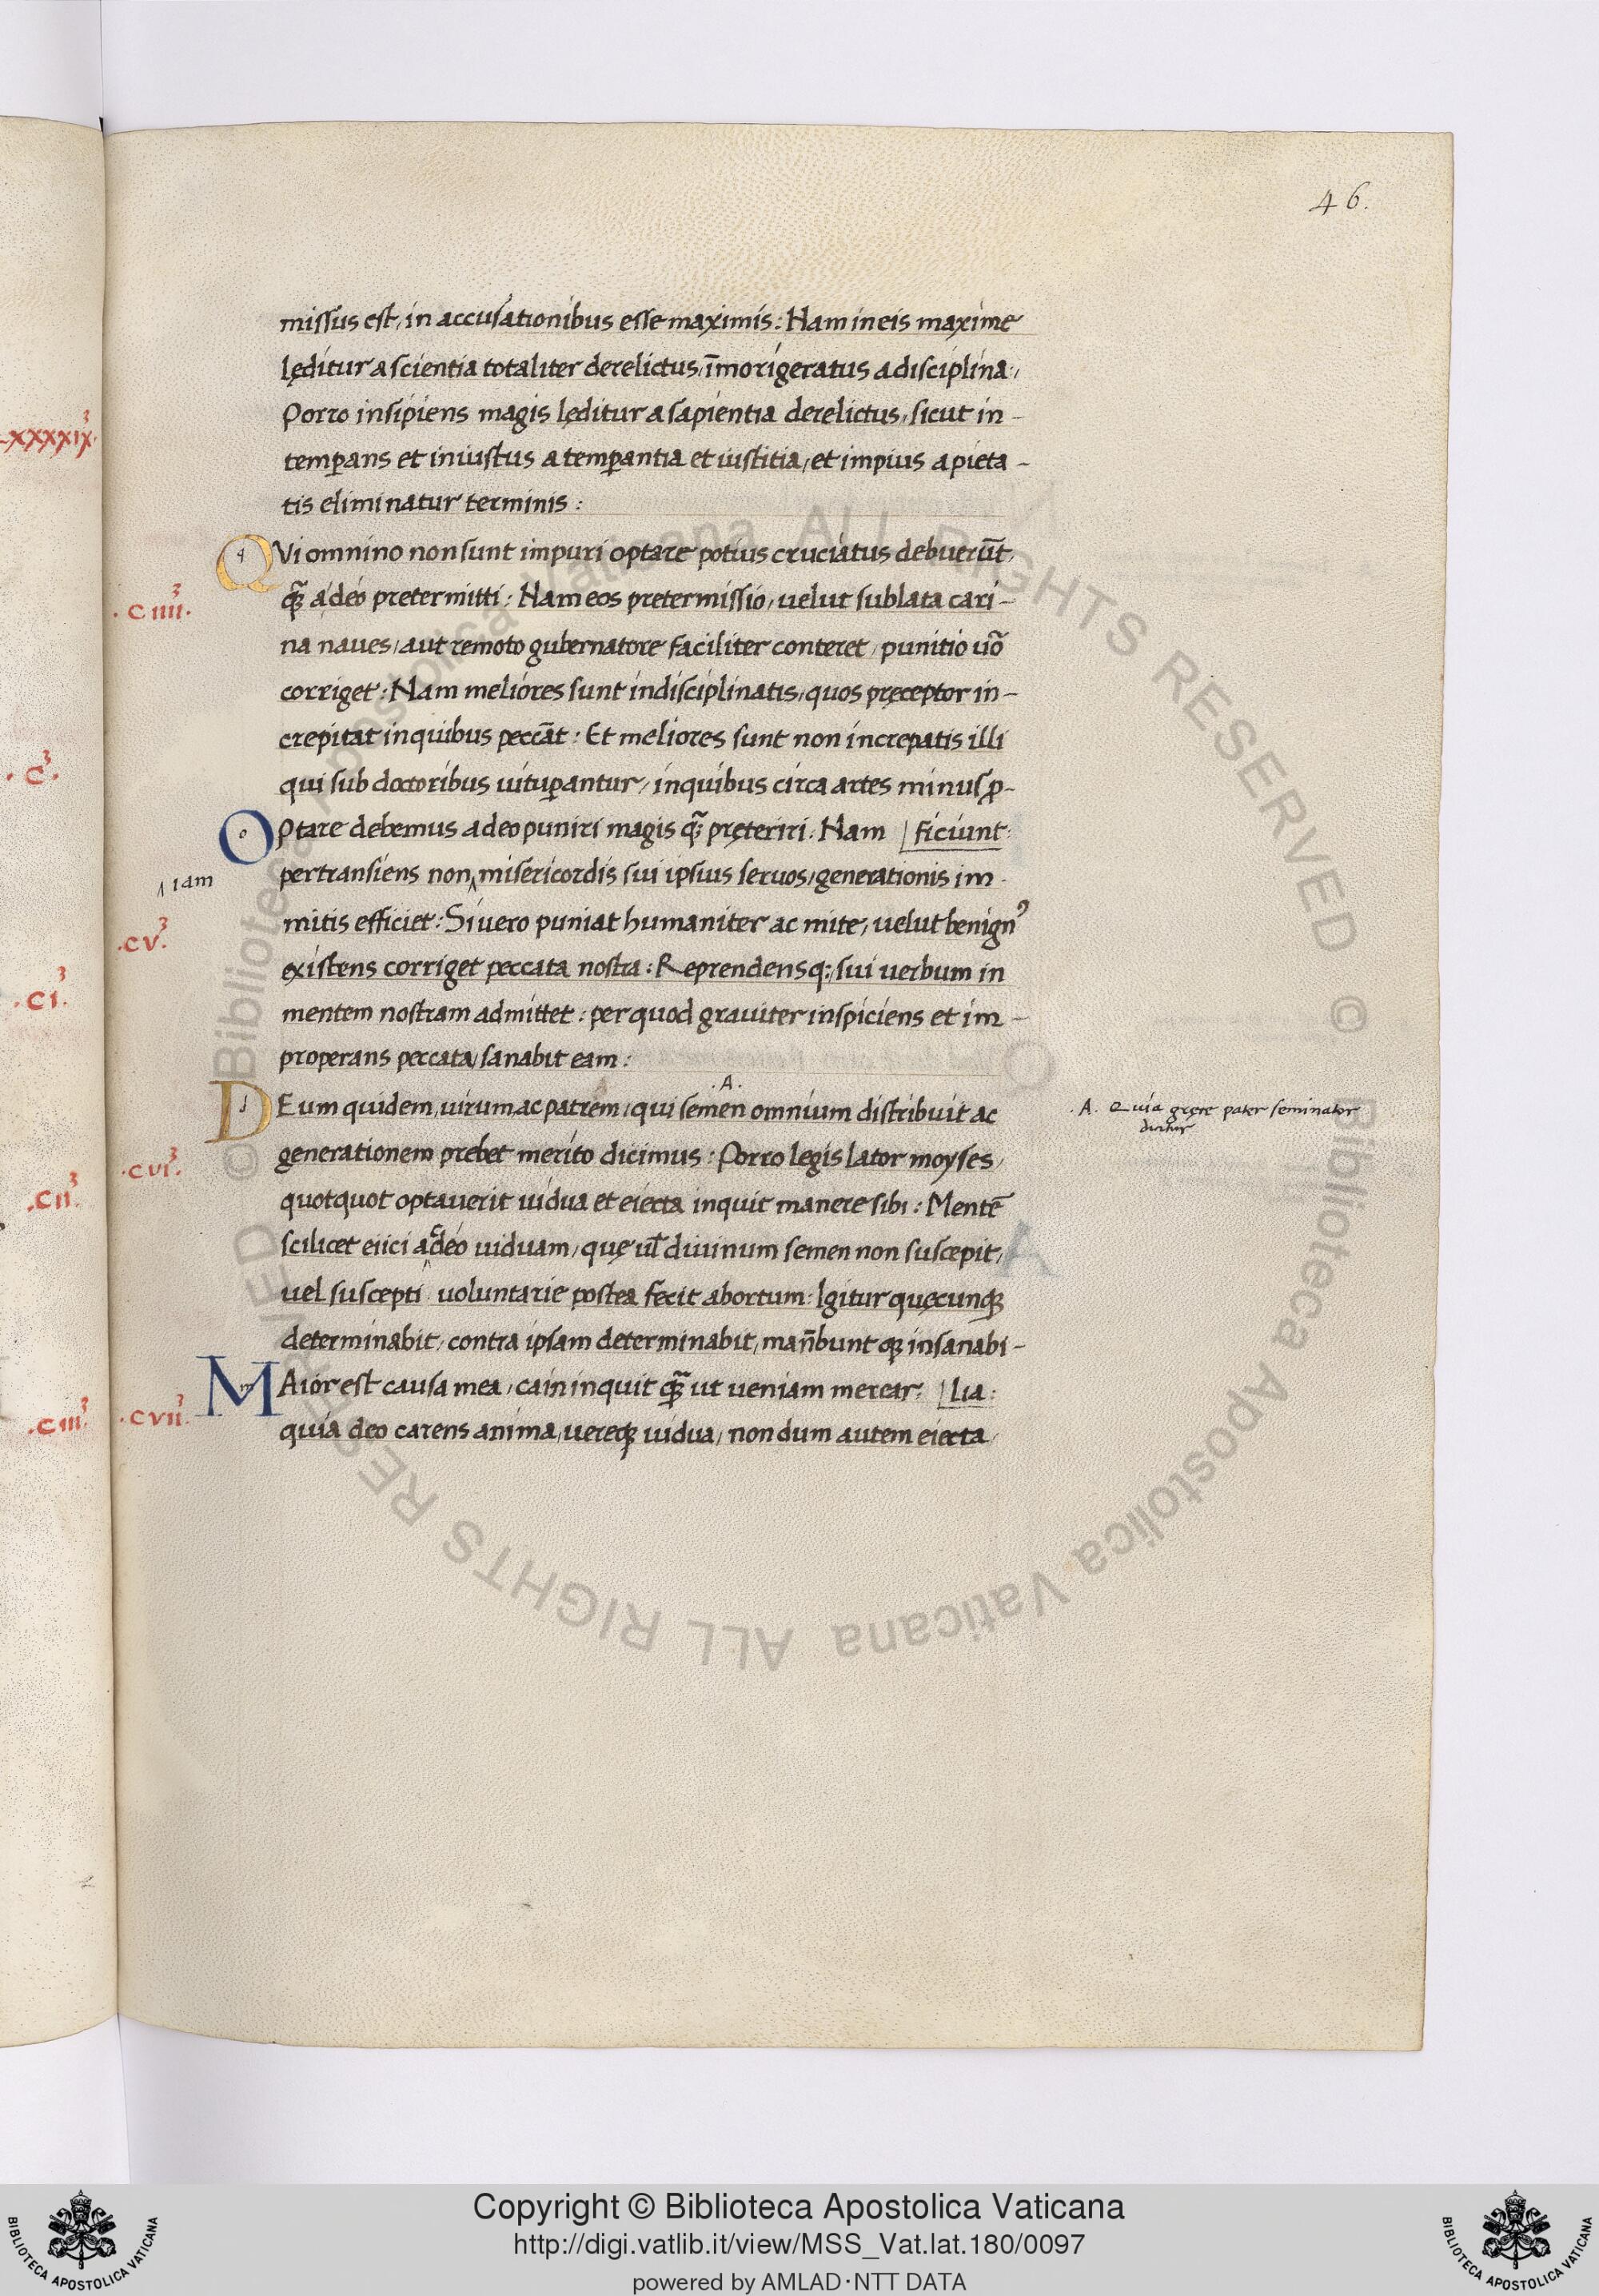 46.
missus est, in accusationibus esse maximis: Nam in eis maxime
lęditur a scientia totaliter derelictus, īmorigeratus a disciplina:,
Porro insipiens magis lęditur a sapientia derelictus, sicut in-
temꝑans et iniustus a temꝑantia et iustitia, et impius a pieta-
tis eliminatur terminis:
QVi omnino non sunt impuri optare potius cruciatus debuerūt,
.CIIII.³
qꝫ̃ a deo pretermitti: Nam eos pretermissio, uelut sublata cari-
na naues, aut remoto gubernatore faciliter conteret, punitio uō
corriget: Nam meliores sunt indisciplinatis, quos pręceptor in-
crepitat in quibus peccāt: Et meliores sunt non increpatis illi
qui sub doctoribus uituꝑantur, in quibus circa artes minus ꝓ-
OPtare debemus a deo puniri magis qꝫ̃ pręteriri: Nam [ficiunt:
pertransiens non ‸ misericordis sui ipsius seruos, generationis im-
‸ iam
mitis efficiet: Si uero puniat humaniter ac mite, uelut benignꝰ
.CV.³
existens corriget peccata nostra: Reprendensqꝫ, sui uerbum in
mentem nostram admittet: per quod grauiter inspiciens et im-
properans peccata, sanabit eam:
.A.
DEum quidem, uirum ac patrem, qui semen omnium distribuit ac
.A. Quia gręce pater seminator
dicitur
generationem prebet merito dicimus: Porro legislator moyses,
.CVI.³
quotquot optauerit uidua et eiecta inquit manere sibi: Mentē
scilicet eiici a deo uiduam, quę ul̄ diuinum semen non suscepit,
uel suscepti uoluntarie postea fecit abortum: Igitur quęcunqꝫ
determinabit, contra ipsam determinabit, man̄bunt qꝫ insanabi-
MAior est causa mea, cain inquit qꝫ̃ ut ueniam merear: [lia:
.CVII.³
quia deo carens anima, uereqꝫ uidua, nondum autem eiecta,
XXXXIX.³
.C.³
.CI.³
.CII.³
.CIII.³
© Biblioteca Apostolica Vaticana ALL RIGHTS RESERVED © Biblioteca Apostolica Vaticana ALL RIGHTS RESERVED
BIBLIOTECA APOSTOLICA VATICANA
Copyright © Biblioteca Apostolica Vaticana
http://digi.vatlib.it/view/MSS_Vat.lat.180/0097
powered by AMLAD·NTT DATA
BIBLIOTECA APOSTOLICA VATICANA